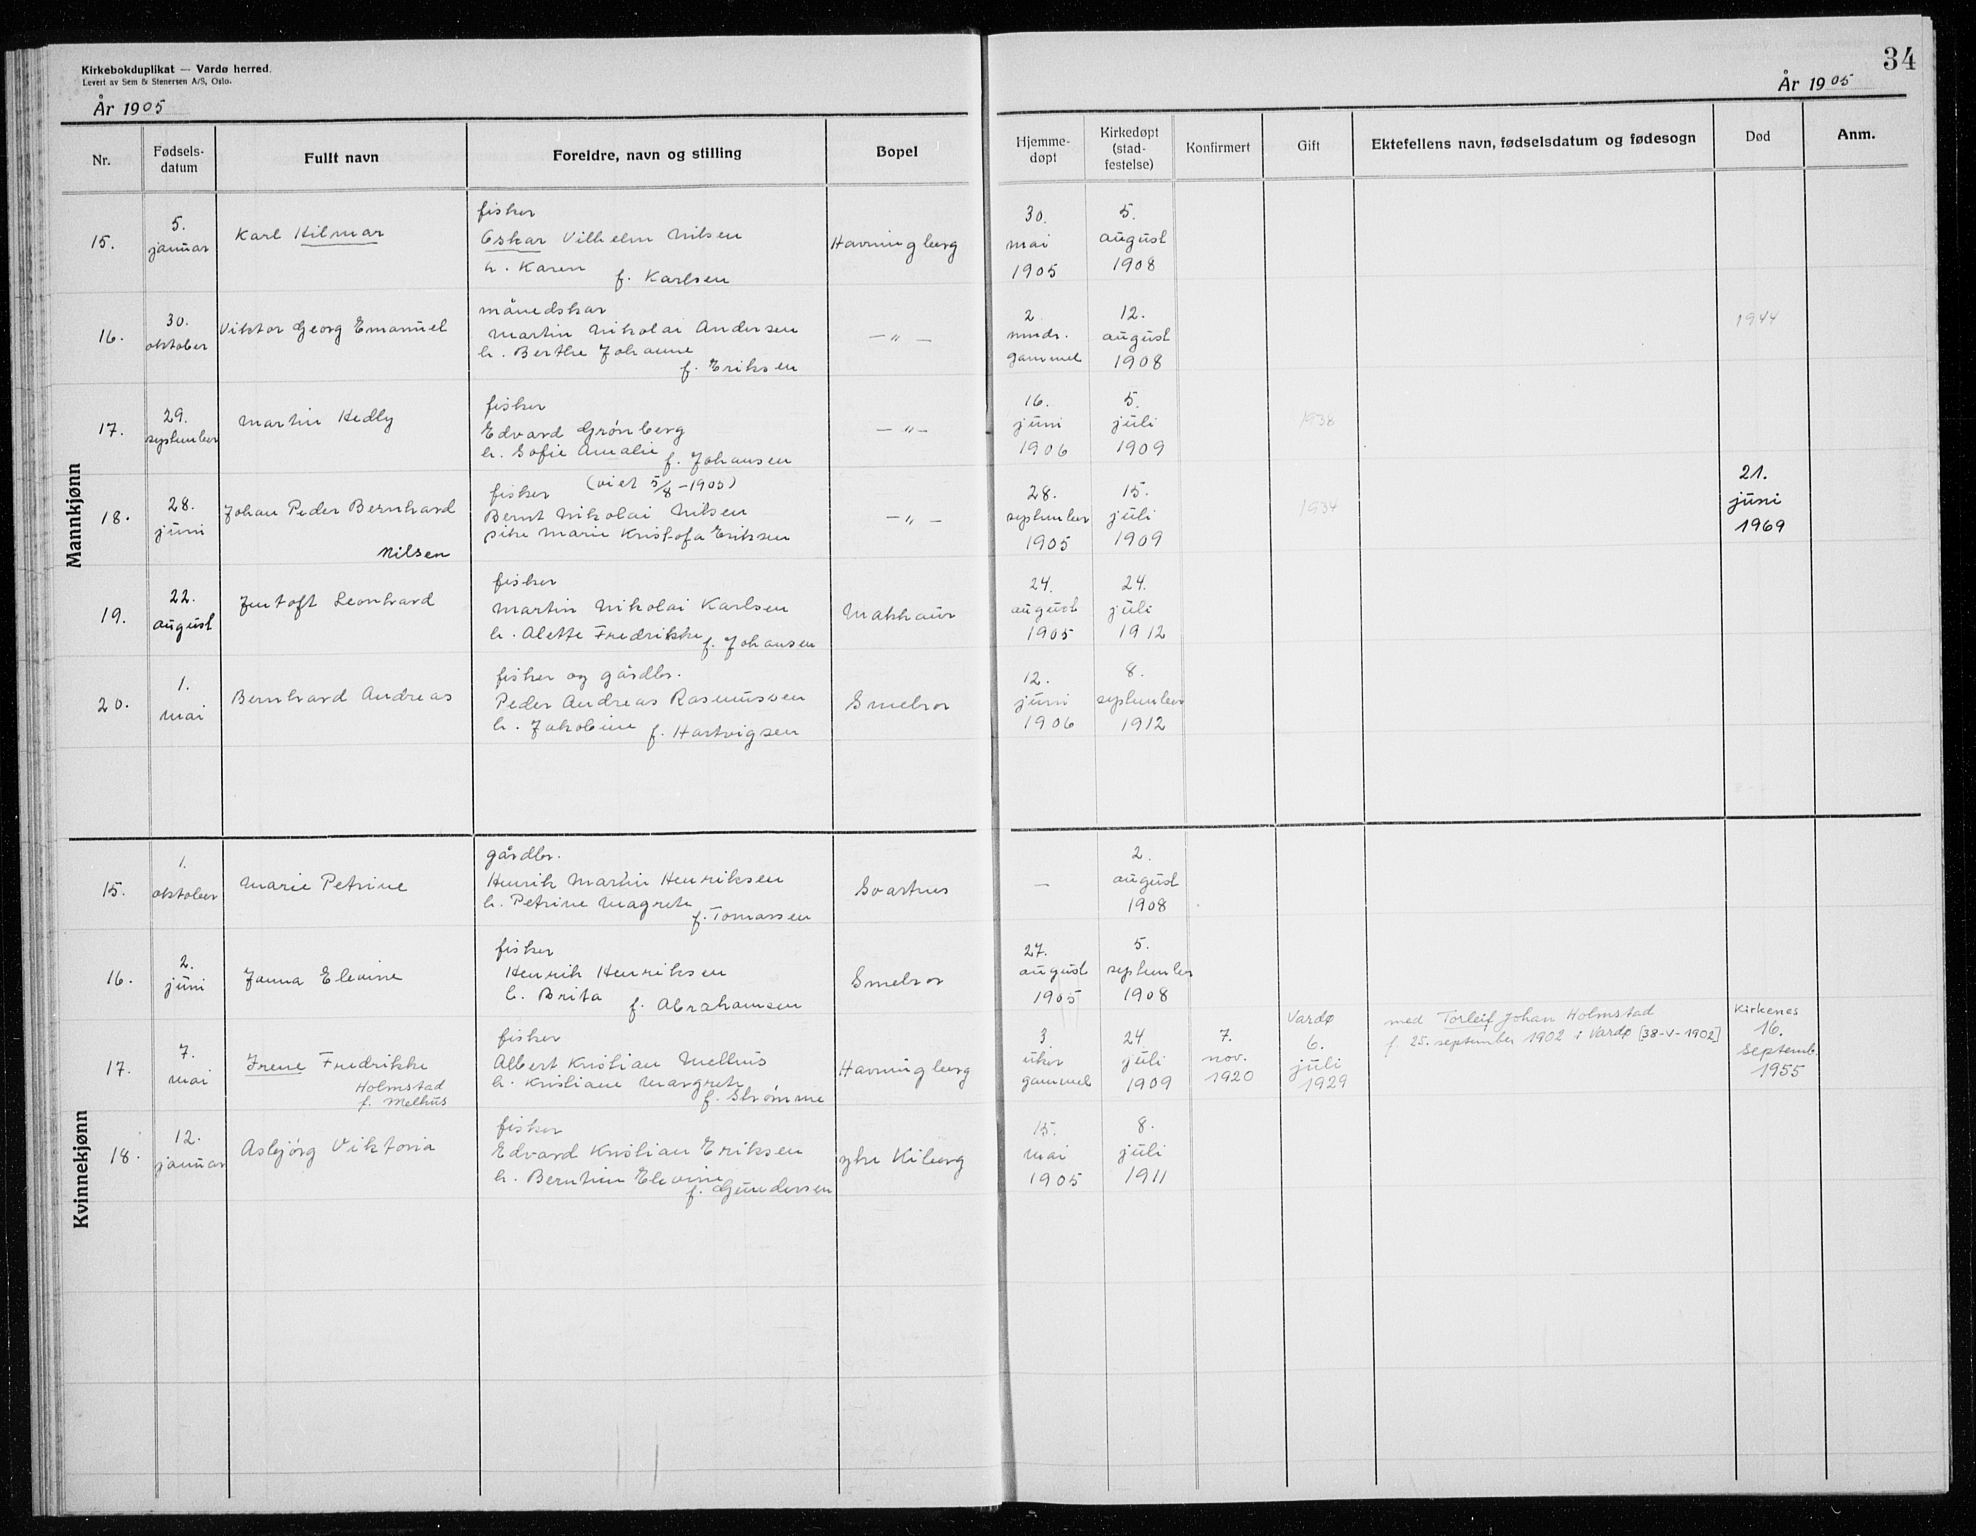 34
Kirkebokduplikat — Vardø herred.
Levert av Sem & Stenersen A/S, Oslo.
År 1905
År 1905
Nr.
Fødsels-
datum
Fullt navn
Foreldre, navn og stilling
Bopel
Hjemme-
døpt
Kirkedøpt
(stad-
festelse)
Konfirmert
Gift
Ektefellens navn, fødselsdatum og fødesogn
Død
Anm.
Mannkjønn
15.
5.
januar
Karl Hilmar
fisker
Oskar Vilhelm Nilsen
h. Karen
f. Karlsen
Havningberg
30.
mai
1905
5.
august
1908
16.
30.
oktober
Viktor Georg Emanuel
månedskar
Martin Nikolai Andersen
h. Berthe Johanne
f. Eriksen
— " —
2
mndr.
gammel
12.
august
1908
1944
17.
29.
september
Martin Hedly
fisker
Edvard Grønberg
h. Sofie Amalie
f. Johansen
— " —
16.
juni
1906
5.
juli
1909
1938
18.
28.
juni
Johan Peder Bernhard
Nilsen
fisker (viet 5/8 - 1905)
Bernt Nikolai Nilsen
pike Marie Kristofa Eriksen
— " —
28.
september
1905
15.
juli
1909
1934
21.
juni
1969
19.
22.
august
Jentoft Leonhard
fisker
Martin Nikolai Karlsen
h. Alette Fredrikke
f. Johansen
Makkaur
24.
august
1905
24.
juli
1912
20.
1.
mai
Bernhard Andreas
fisker og gårdbr.
Peder Andreas Rasmussen
h. Jakobine
f. Hartvigsen
Smelror
12.
juni
1906
8.
september
1912
Kvinnekjønn
15.
1.
oktober
Marie Petrine
gårdbr.
Henrik Martin Henriksen
h. Petrine Magrete
f. Tomassen
Svartnes
—
2.
august
1908
16.
2.
juni
Janna Elevine
fisker
Henrik Henriksen
h. Brita
f. Abrahamsen
Smelror
27.
august
1905
5.
september
1908
17.
7.
mai
Irene Fredrikke
Holmstad
f. Melhus
fisker
Albert Kristian Melhus
h. Kristiane Margrete
f. Strømme
Havningberg
3.
uker
gammel
24
juli
1909
7.
nov.
1920
Vardø
6.
juli
1929
med Torleif Johan Holmstad
f. 25. september 1902 i Vardø [38-V-1902]
Kirkenes
16.
Septemb.
1955
18.
12.
januar
Asbjørg Viktoria
fisker
Edvard Kristian Eriksen
h. Berntine Elevine
f. Gundersen
ytre Kiberg
15.
mai
1905
8.
juli
1911